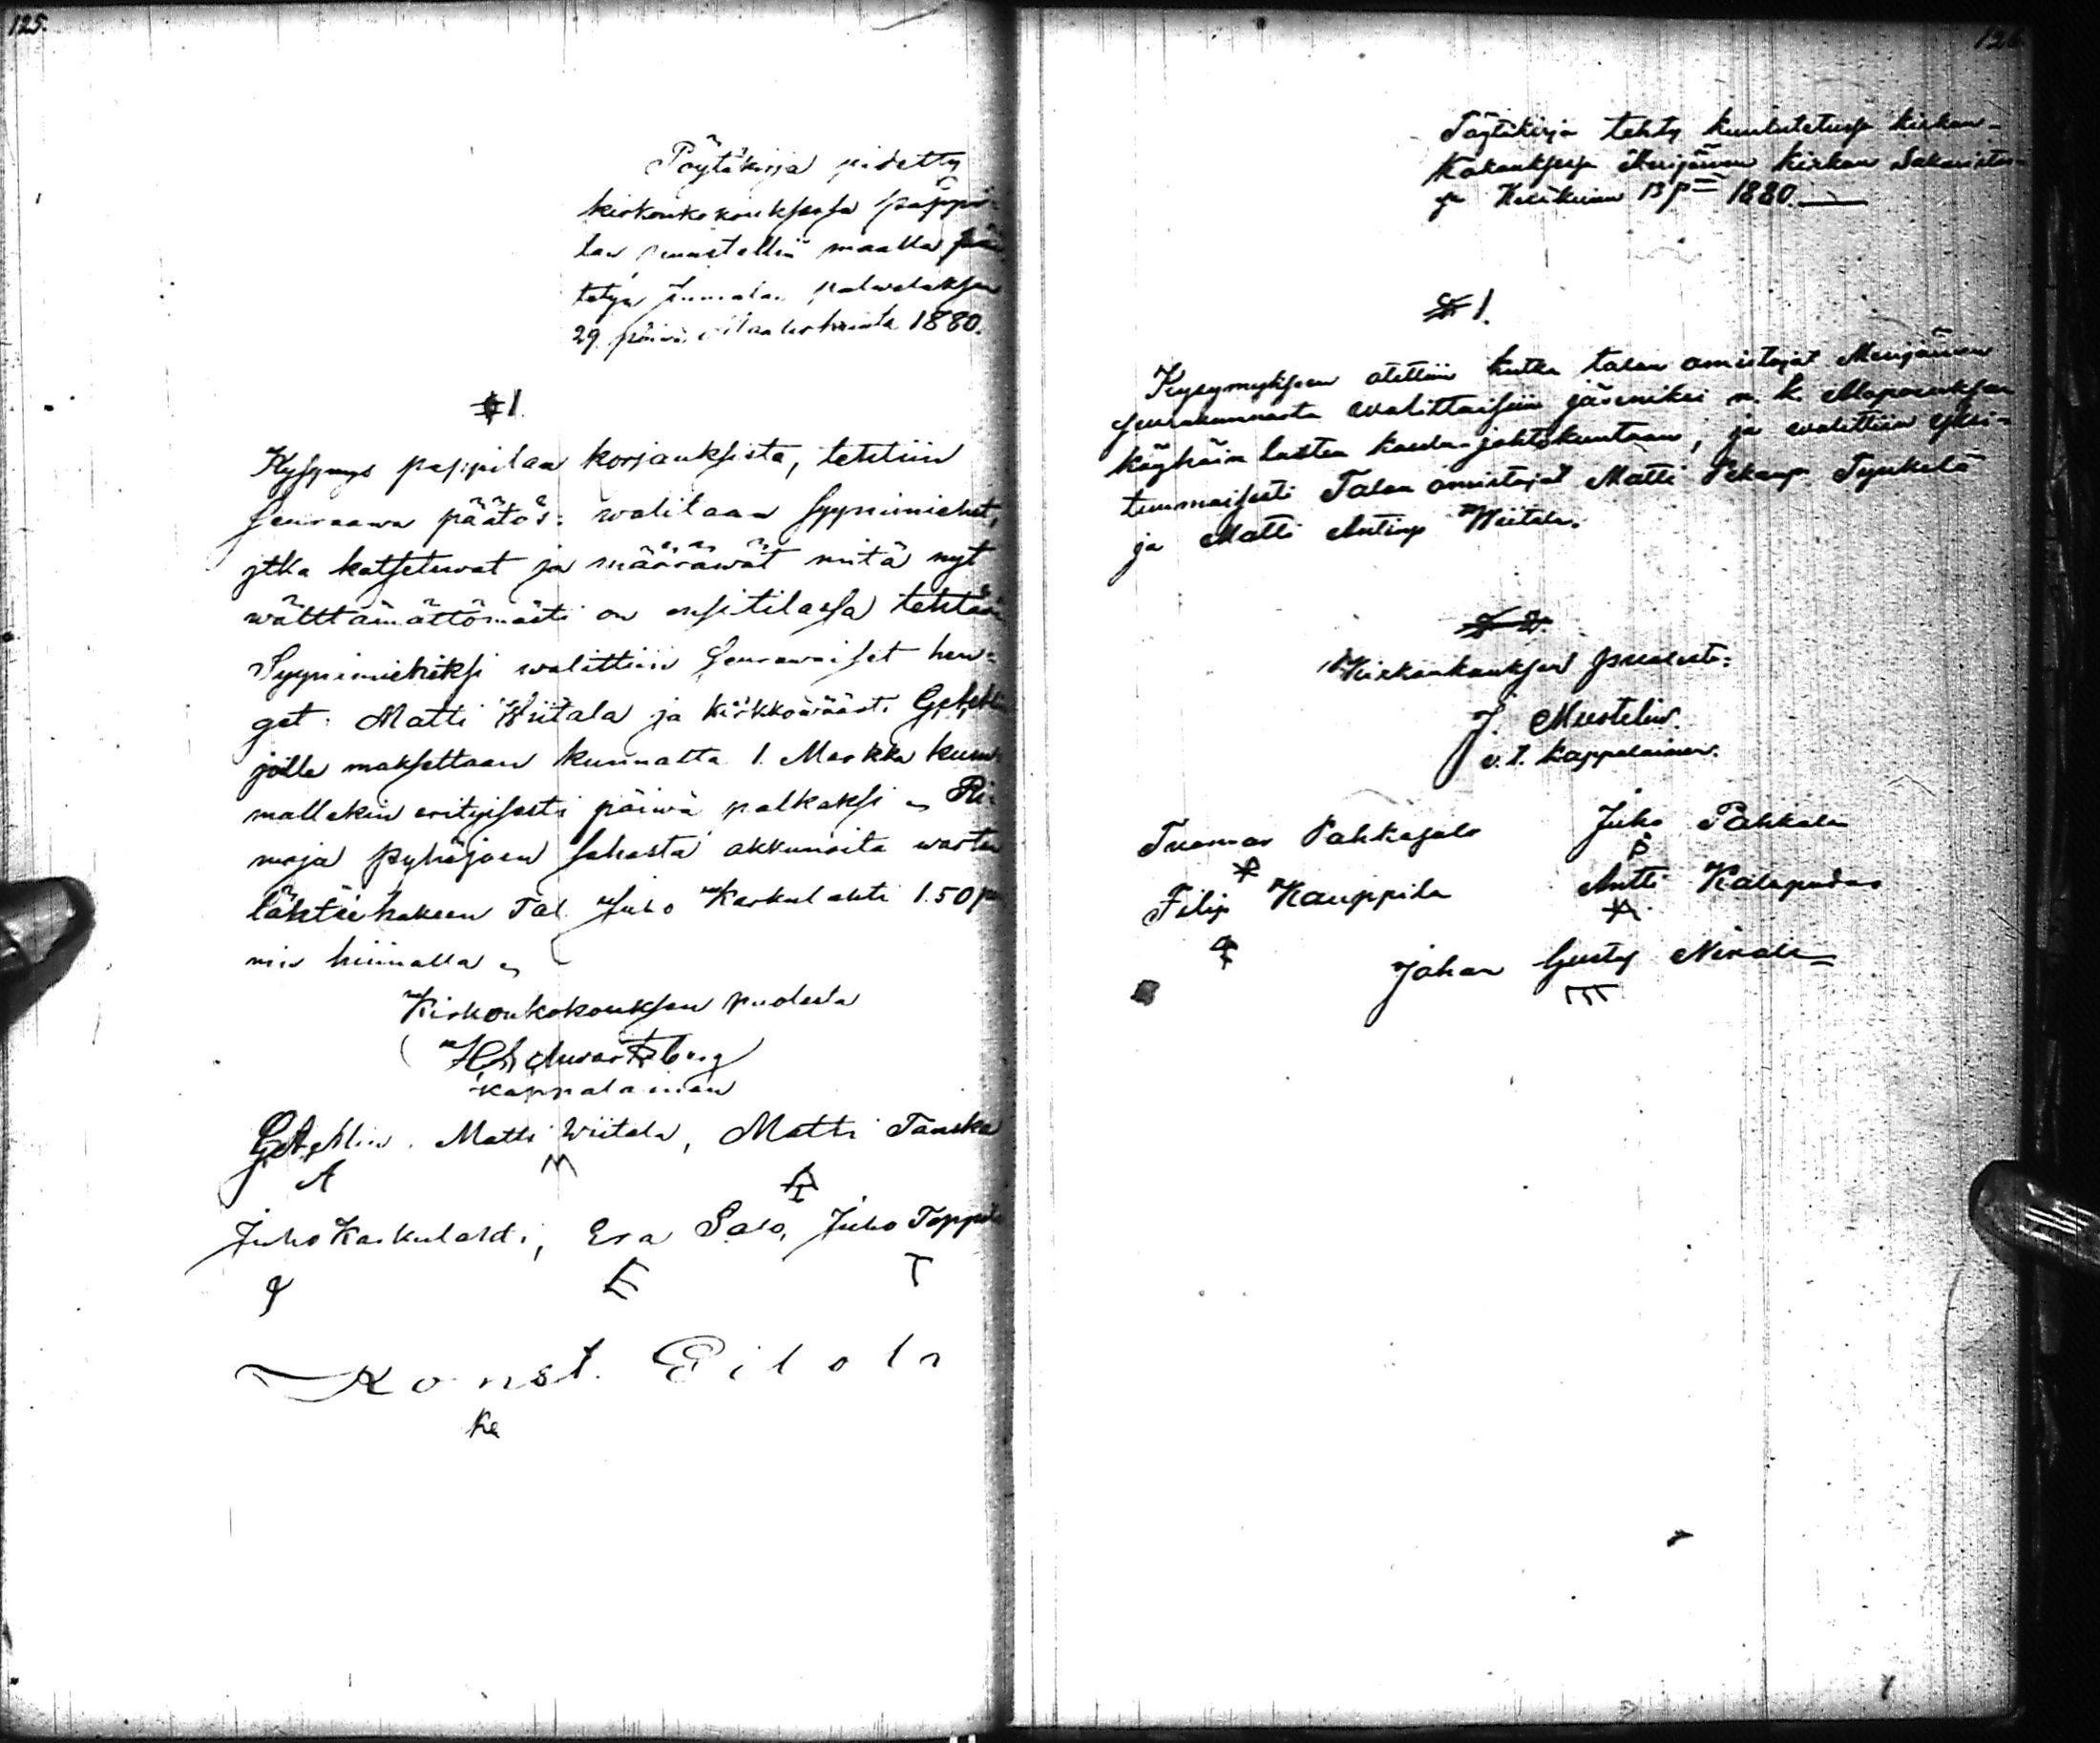 125.
Pöytäkirja pidetty
kirkonkokouksessa pappi-
lan puustellin maalla pää
tetyn Jumalan palveluksen
29 päivä Maaliskuuta 1880.
§ 1.
Kysymys pappilan korjauksista, tehtiin
seuraawa päätös: walitaan syynimiehet,
jtka katseluwat ja määräwät mitä nyt
wälttämättömästi on ensitilassa tehtävä
Syynimiehiksi walittiin seurawaiset hen-
get: Matti Wiitala ja kirkkowäärti
joille maksettaan kunnalta 1. Markka kum-
mallekin erityisesti päiwä palkaksi
Pyhäjoen sahasta akkunoita warten
lähtee hakeen Tal. Juho Karkulahti 1.50 p
nin hinnalla
Kirkonkokouksen puolesta
H Schwartzberg
kappalainen
Matti Wiitala, Matti Tanska
A M
Juho Karkulahti, Esa Salo, Juho Toppila
J E T
Konst. Eilola
Ke
126
Pöytäkirja tehty kuulutetussa kirkon-
kokouksessa Merijärwen kirkon Sakaristos-
sa Kesäkuun 13 p 1880.
§ 1.
Kysymykseen otettiin kutka talon omistajat Merijärwen
seurakunnasta walittaisiin jäseniksi n. k.
köyhäin lasten johtokuntaan, ja walittiin yksi-
tuumaisesti Talon omistajat Matti Pekanp. Tynkelä
ja Matti Antinp Wiitala.
Kirkonkouksen puolesta:
J. Mustelin.
v. t. kappalainen.
Tuomas Pahkasalo Juho Pahkala
P
Filip Kauppila Antti Kalapudas
Johan Gustf Nirola